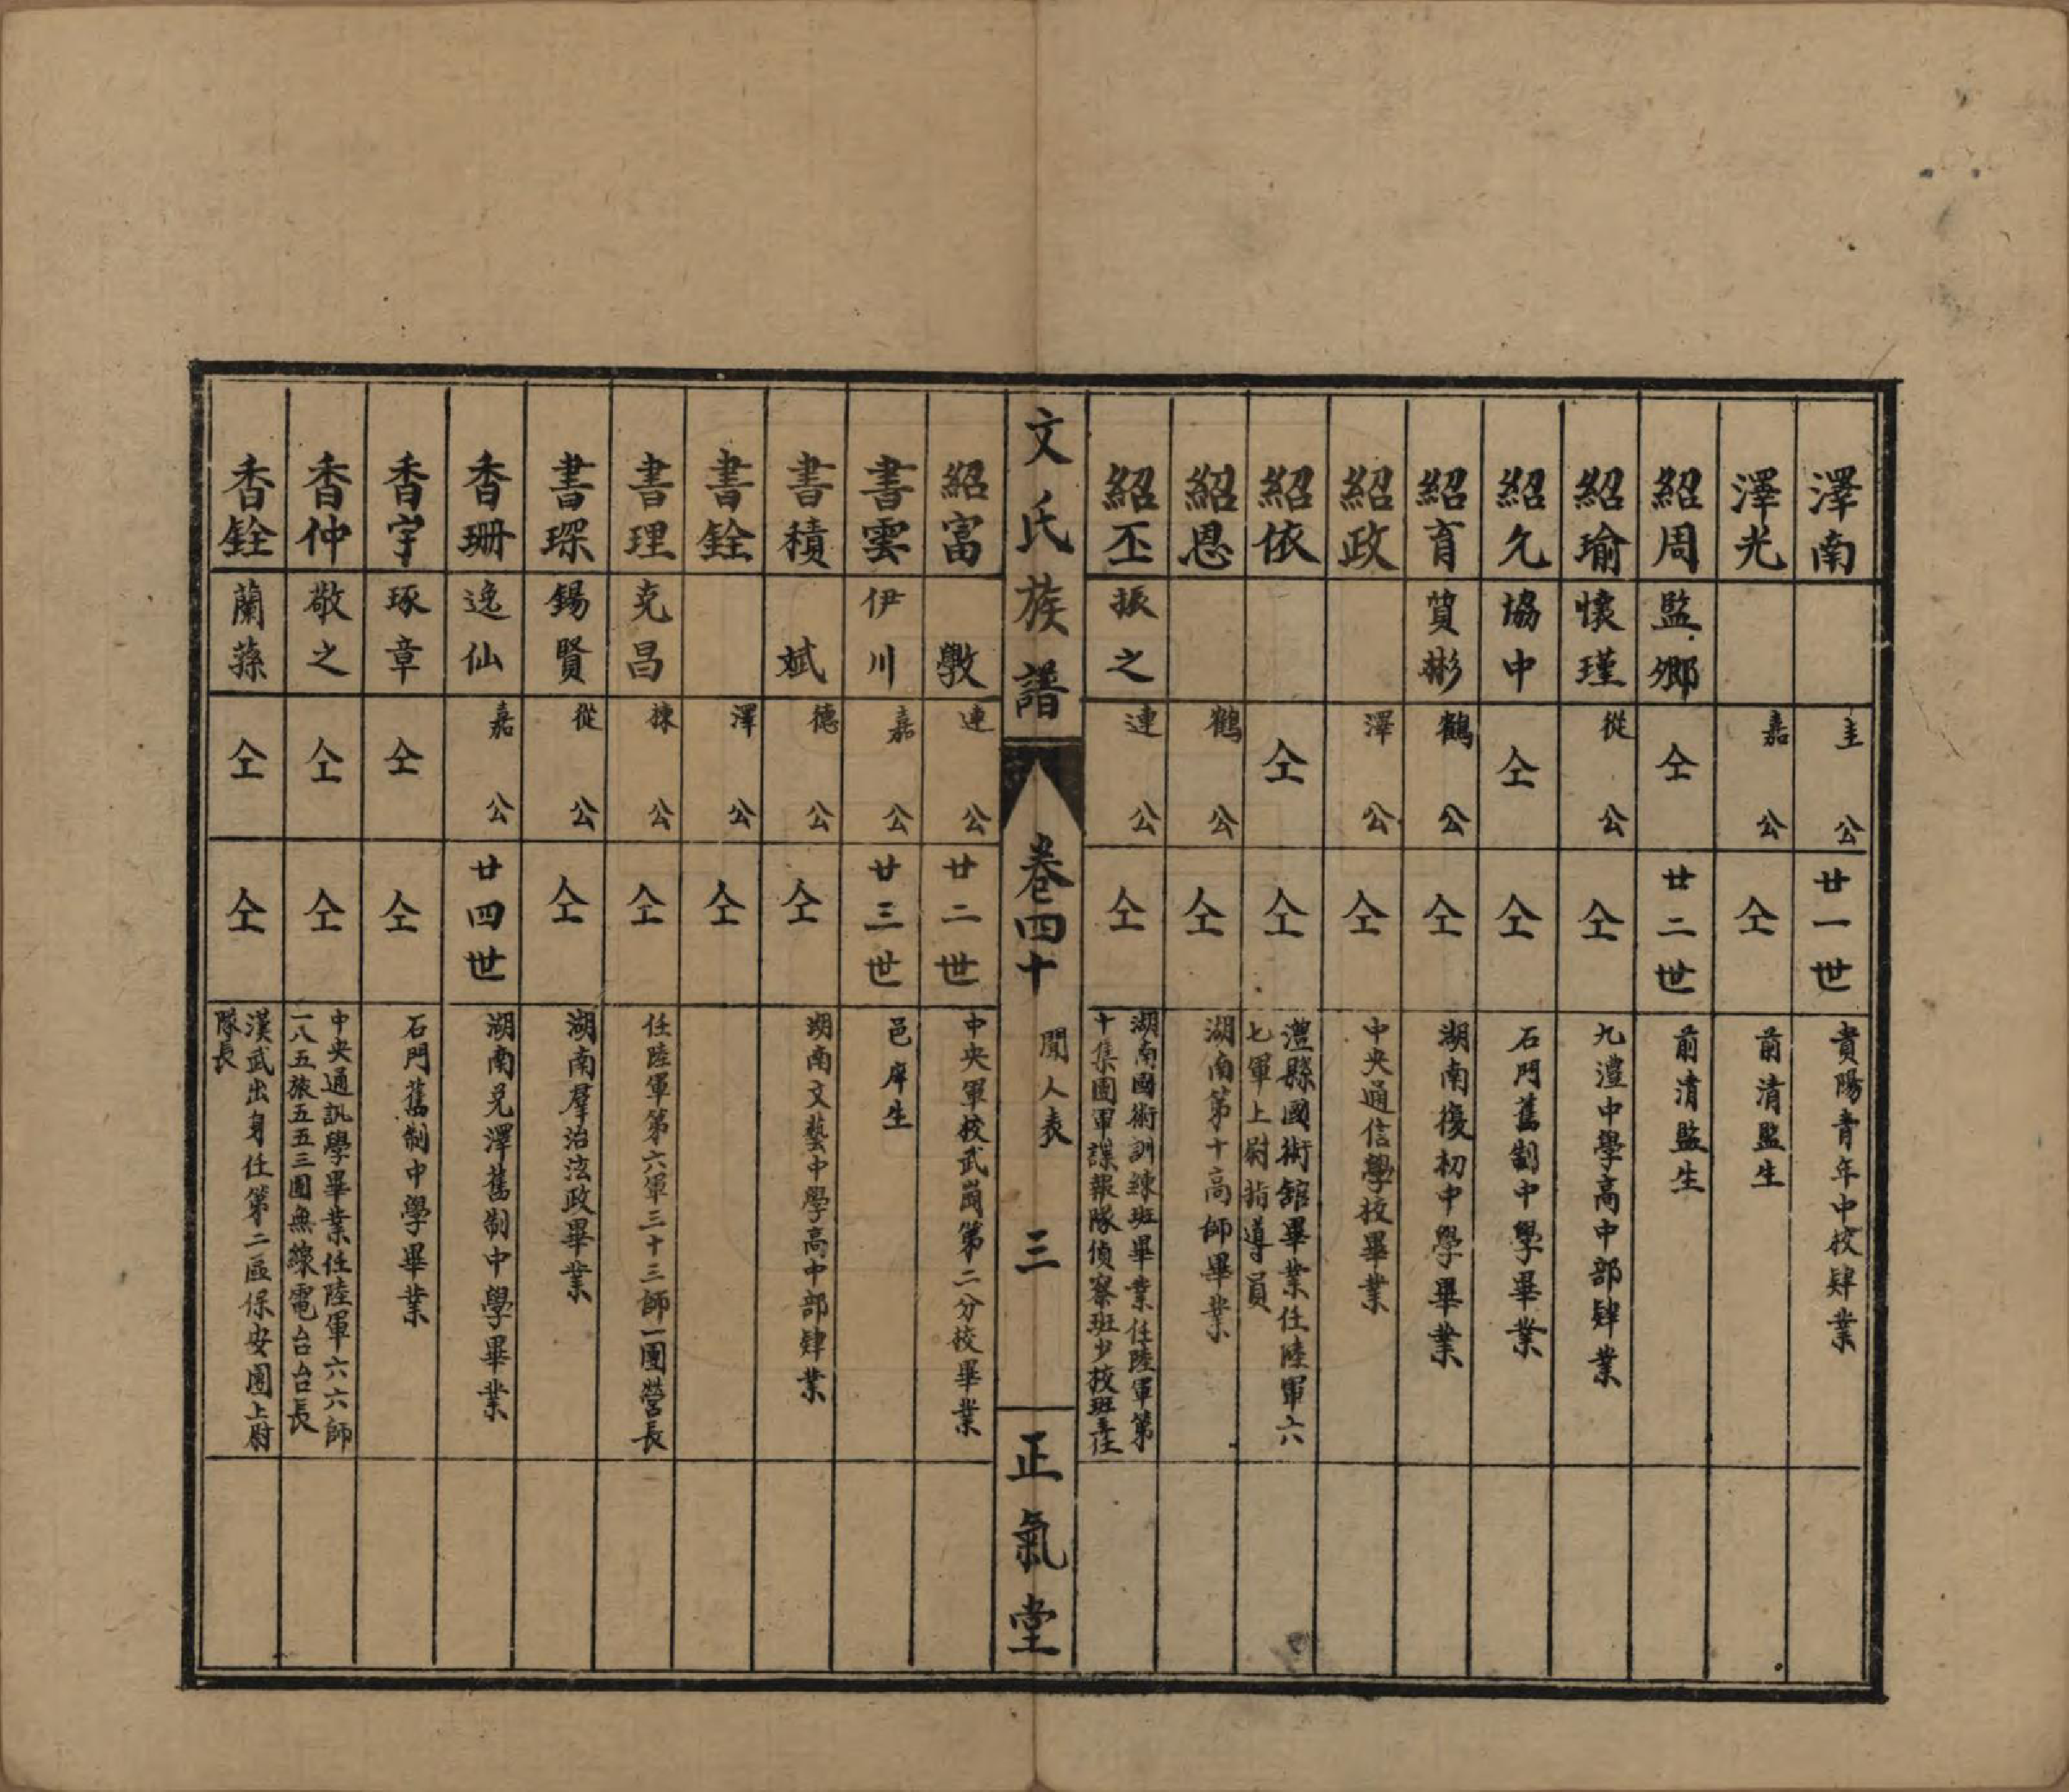 澤南 圭公 廿一世 貴陽青年中校肄業
澤光 嘉公 仝 前清監生
紹周 監卿 仝 廿二世 前清監生
紹瑜 懷瑾 從公 仝 九澧中學高中部肄業
紹允 協中 仝 仝 石門舊制中學畢業
紹育 質彬 鶴公 仝 湖南復初中學畢業
紹政 澤公 仝 中央通信學校畢業
紹依 仝 仝 澧縣國術館畢業任陸軍六
七軍上尉指導員
紹恩 鶴公 仝 湖南第十高師畢業
紹丕 振之 連公 仝 湖南國術訓練班畢業任陸軍第
十集團軍諜報隊偵察班少校班主任
文氏族譜 卷四十 聞人表 三 正氣堂
紹富 斆 連公 廿二世 中央軍校武崗第二分校畢業
書雲 伊川 嘉公 廿三世 邑庠生
書積 斌 德公 仝 湖南文藝中學高中部肄業
書銓 澤公 仝
書理 克昌 棟公 仝 任陸軍第六軍三十三師一團營長
書琛 錫賢 從公 仝 湖南羣治法政畢業
香珊 逸仙 嘉公 廿四世 湖南兌澤舊制中學畢業
香宇 琢章 仝 仝 石門舊制中學畢業
香仲 敬之 仝 仝 中央通訊學畢業任陸軍六六師
一八五旅五五三團無線電台台長
香銓 蘭蓀 仝 仝 漢武出身任第二區保安團上尉
隊長